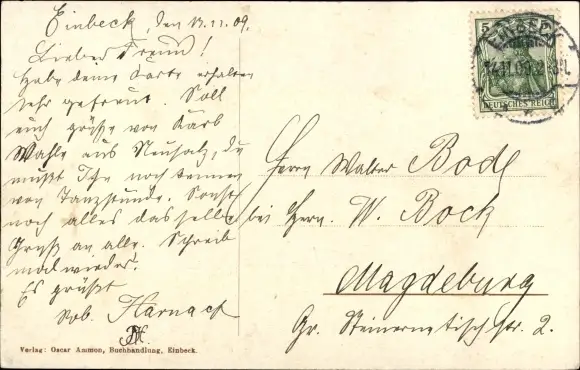 Einbeck, den 13.11.09.
Lieber Freund!
Habe deine Karte erhalten
sehr gefreut. Soll
euch grüße von Karl
Wahle aus Neusalz, du
mußt Ihn noch kennen
von Tanzstunde. Sonst
noch alles dasselbe
Gruß an alle. Schreib
mal wieder.
Es grüßt
Rob. Harnack
Verlag: Oscar Ammon, Buchhandlung, Einbeck.
5
EINBECK
DEUTSCHES REICH
Herrn Walter Bode
bei Herrn W. Bock
Magdeburg
Gr. Steinernetischstr. 2.